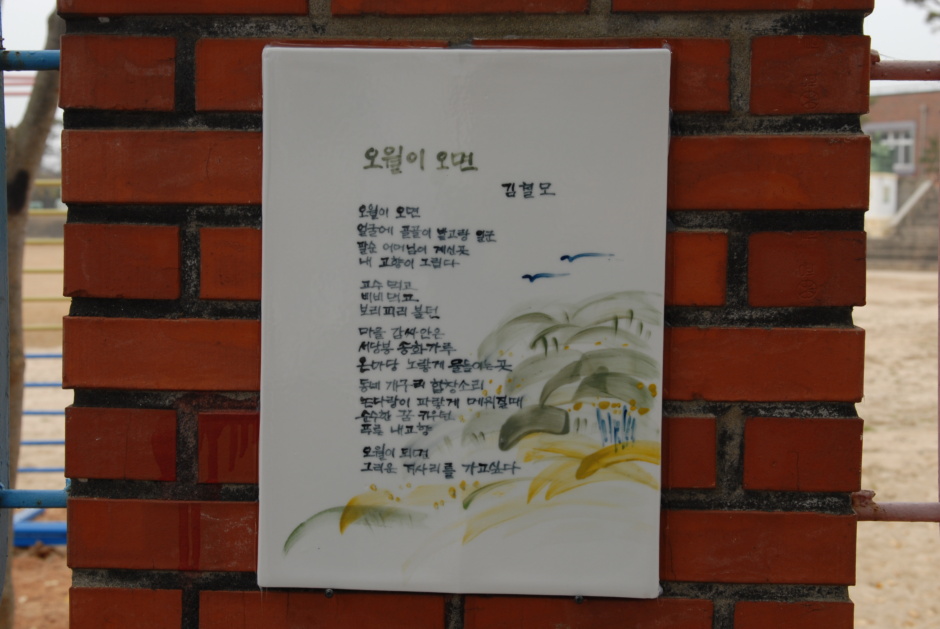 오월이 오면
김철모
오월이 오면
얼굴에 골골이 밭고랑 일군
팔순 어머님이 계신곳
내 고향이 그립다
고수 되고
삐비 되고
보리피리 불던
마을 감싸안은
서당봉 송화가루
온마당 노랗게 물들이는곳
동네 개구리 합창소리
논다랑이 파랗게 메워질때
순수한 꿈 키우던
푸른 내고향
오월이 되면
그리운 지사리를 가고싶다